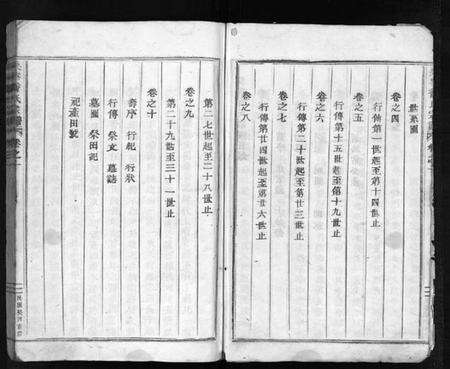 世系圖
卷之四
行傳第一世起至第十四世止
卷之五
行傳第十五世起至第十九世止
卷之六
行傳第二十世起至第廿三世止
卷之七
行傳第廿四世起至第廿六世止
卷之八
第二十七世起至二十八世止
卷之九
第二十九世起至三十一世止
卷之十
壽序 行紀 行狀
行傳 祭文 墓誌
墓圖 祭田記
祀產田號